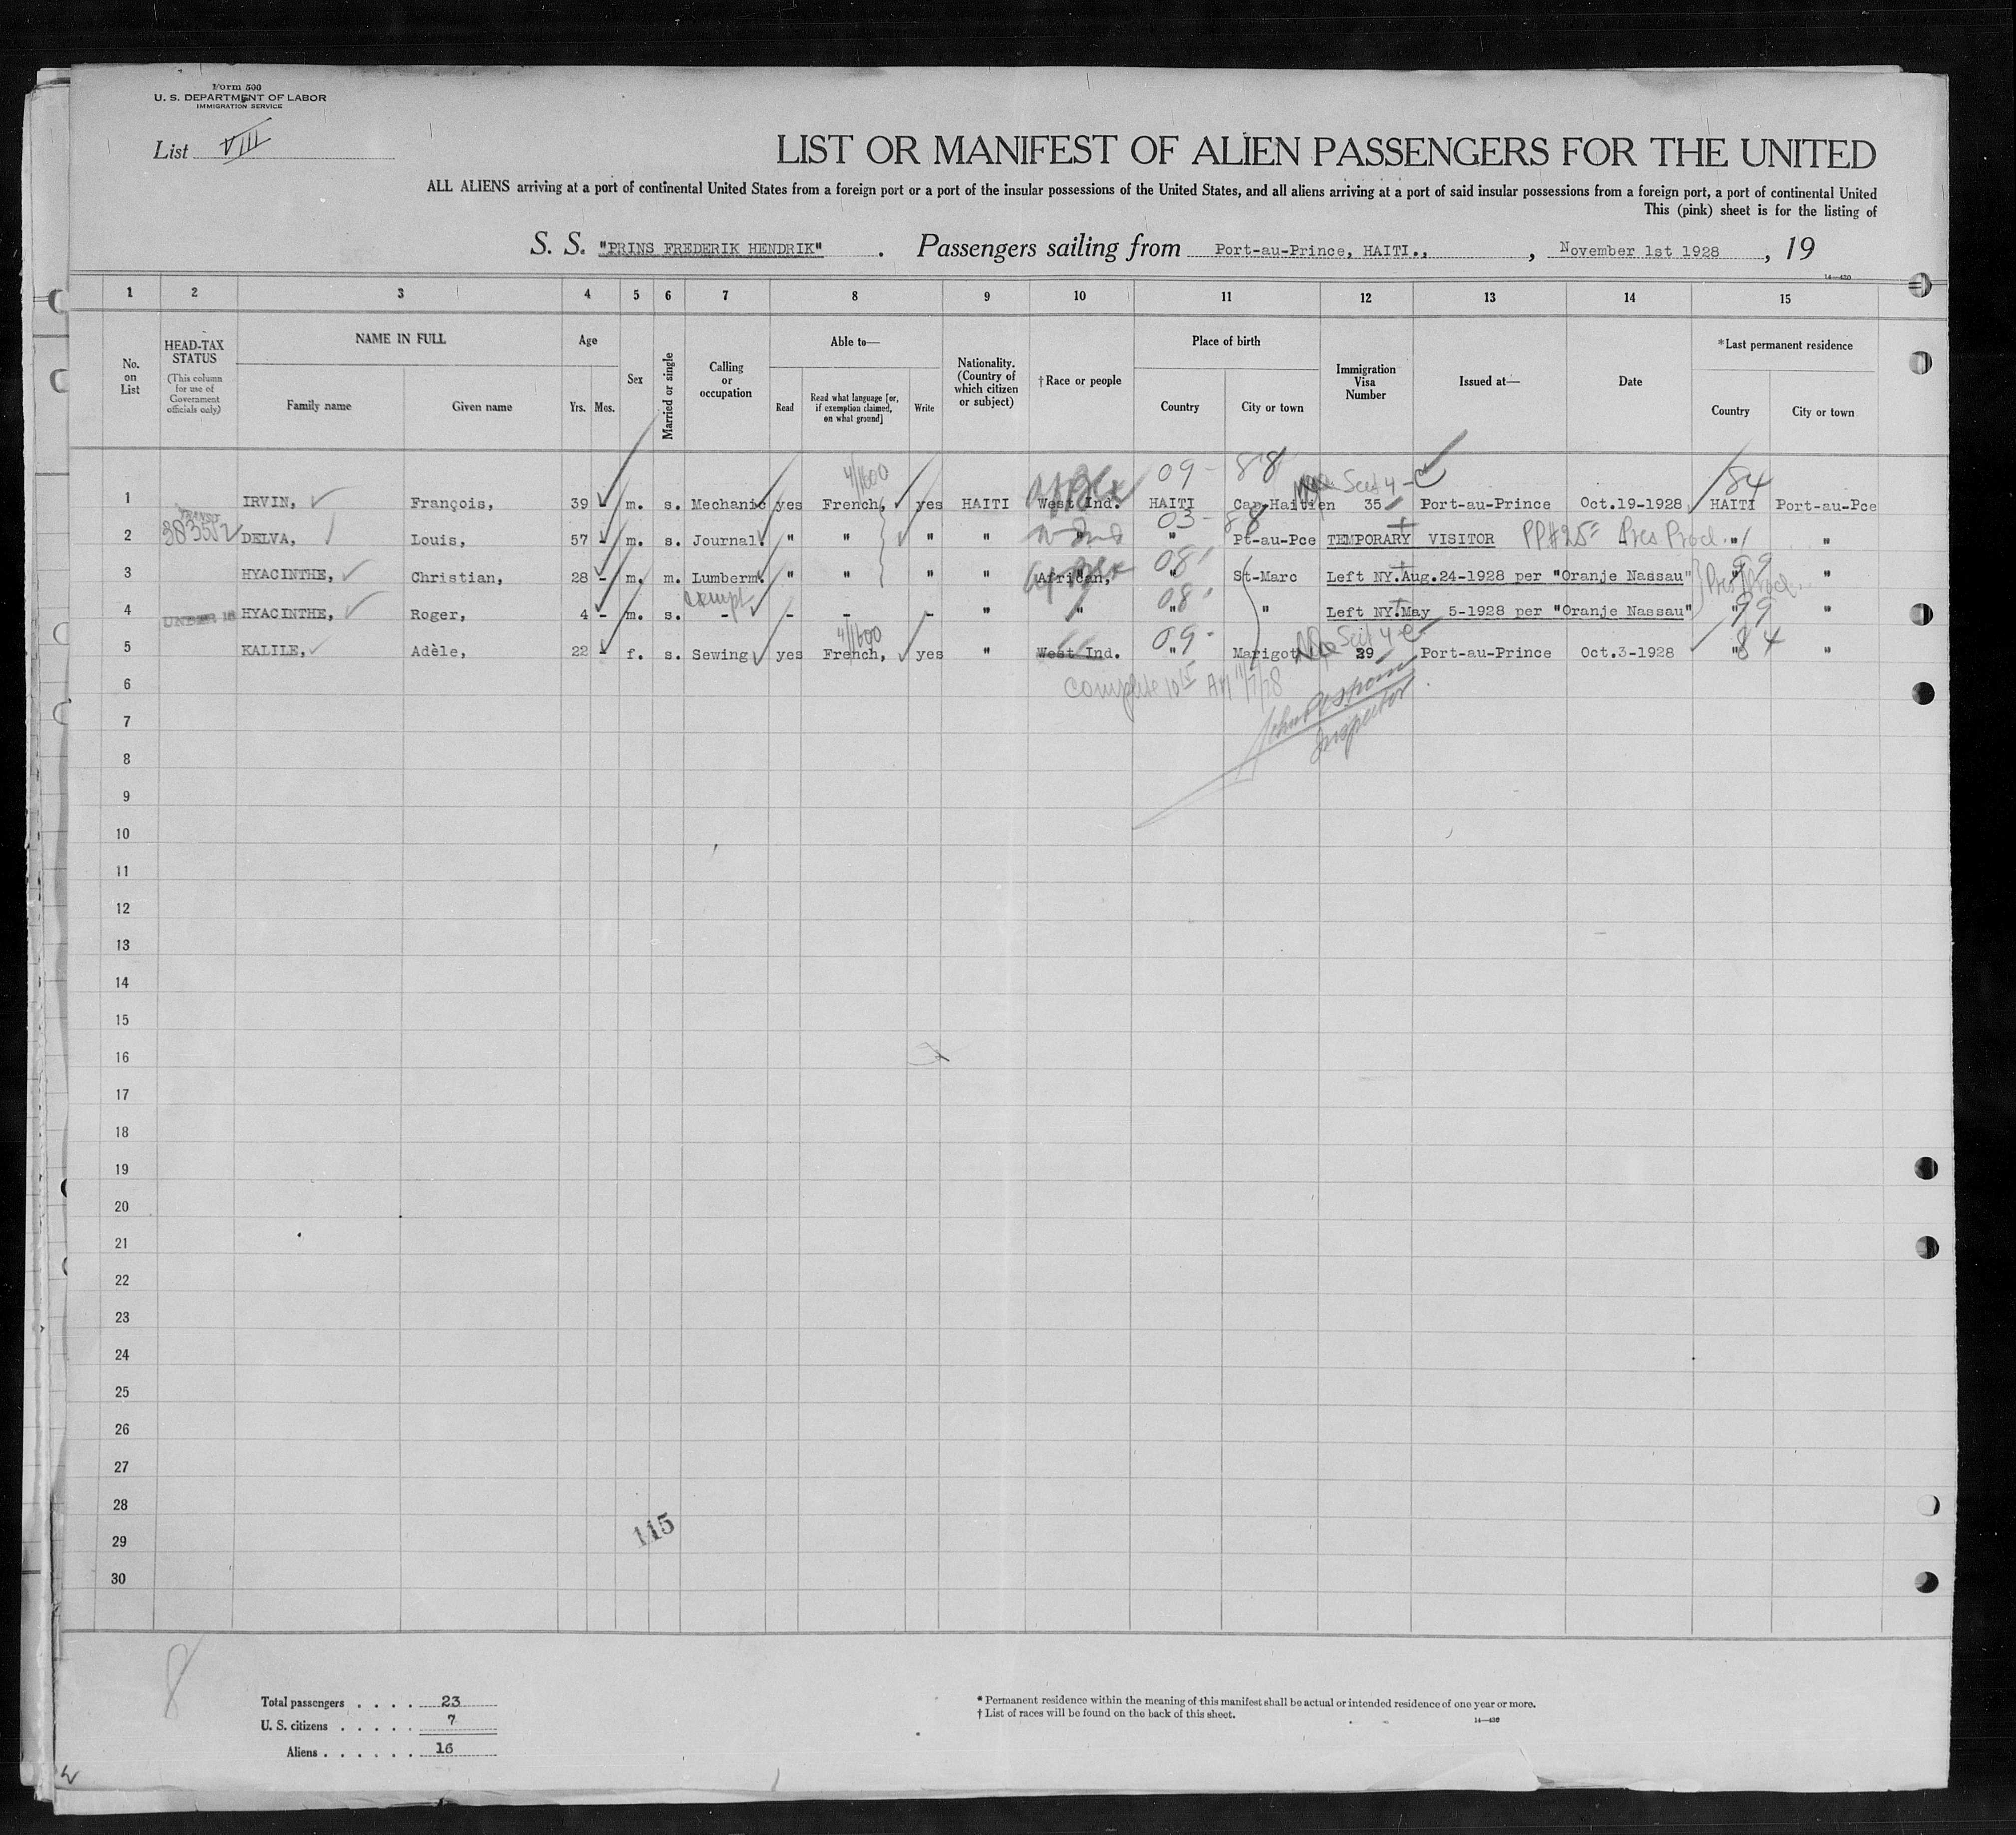 Form 500
U. S. DEPARTMENT OF LABOR
IMMIGRATION SERVICE
List VIII
LIST OR MANIFEST OF ALIEN PASSENGERS FOR THE UNITED
ALL ALIENS arriving at a port of continental United States from a foreign port or a port of the insular possessions of the United States, and all aliens arriving at a port of said insular possessions from a foreign port, a port of continental United
This (pink) sheet is for the listing of
S. S. "PRINS FREDERIK HENDRIK" . Passengers sailing from Port-au-Prince, HAITI., , November 1st 1928 , 19
14—430
1 2 3 4 5 6 7 8 9 10 11 12 13 14 15
No. on List
HEAD-TAX STATUS (This column for use of Government officials only)
NAME IN FULL
Family name Given name
Age
Yrs. Mos.
Sex
Married or single
Calling or occupation
Able to—
Read
Read what language [or, if exemption claimed, on what ground]
Write
Nationality. (Country of which citizen or subject)
† Race or people
Place of birth
Country City or town
Immigration Visa Number
Issued at—
Date
*Last permanent residence
Country City or town
4/1600 09 - 88 Sect 4 - C 84
1 IRVIN, François, 39 m. s. Mechanic yes French, yes HAITI West Ind. HAITI Cap-Haitien 35 Port-au-Prince Oct.19-1928 HAITI Port-au-Pce
TRANSIT 03 - 88
2 DELVA, Louis, 57 m. s. Journal. " " " " " " Pt-au-Pce TEMPORARY VISITOR PP#25 Pres Procl. " "
08 99
3 HYACINTHE, Christian, 28 - m. m. Lumberm. " " " " African, " St-Marc Left NY.Aug.24-1928 per "Oranje Nassau" "
exempt 08 Pres Procl.
4 UNDER 16 HYACINTHE, Roger, 4 - m. s. - - - - " " " " Left NY.May 5-1928 per "Oranje Nassau" " 99 "
4/1600 09 - Sect 4-c
5 KALILE, Adèle, 22 - f. s. Sewing yes French, yes " West Ind. " Marigot 39 Port-au-Prince Oct.3-1928 " 84 "
6 complete
Inspector
7
8
9
10
11
12
13
14
15
16
17
18
19
20
21
22
23
24
25
26
27
28
115
29
30
8
Total passengers . . . . 23
U. S. citizens . . . . . 7
Aliens . . . . . . 16
* Permanent residence within the meaning of this manifest shall be actual or intended residence of one year or more.
† List of races will be found on the back of this sheet.
14—430